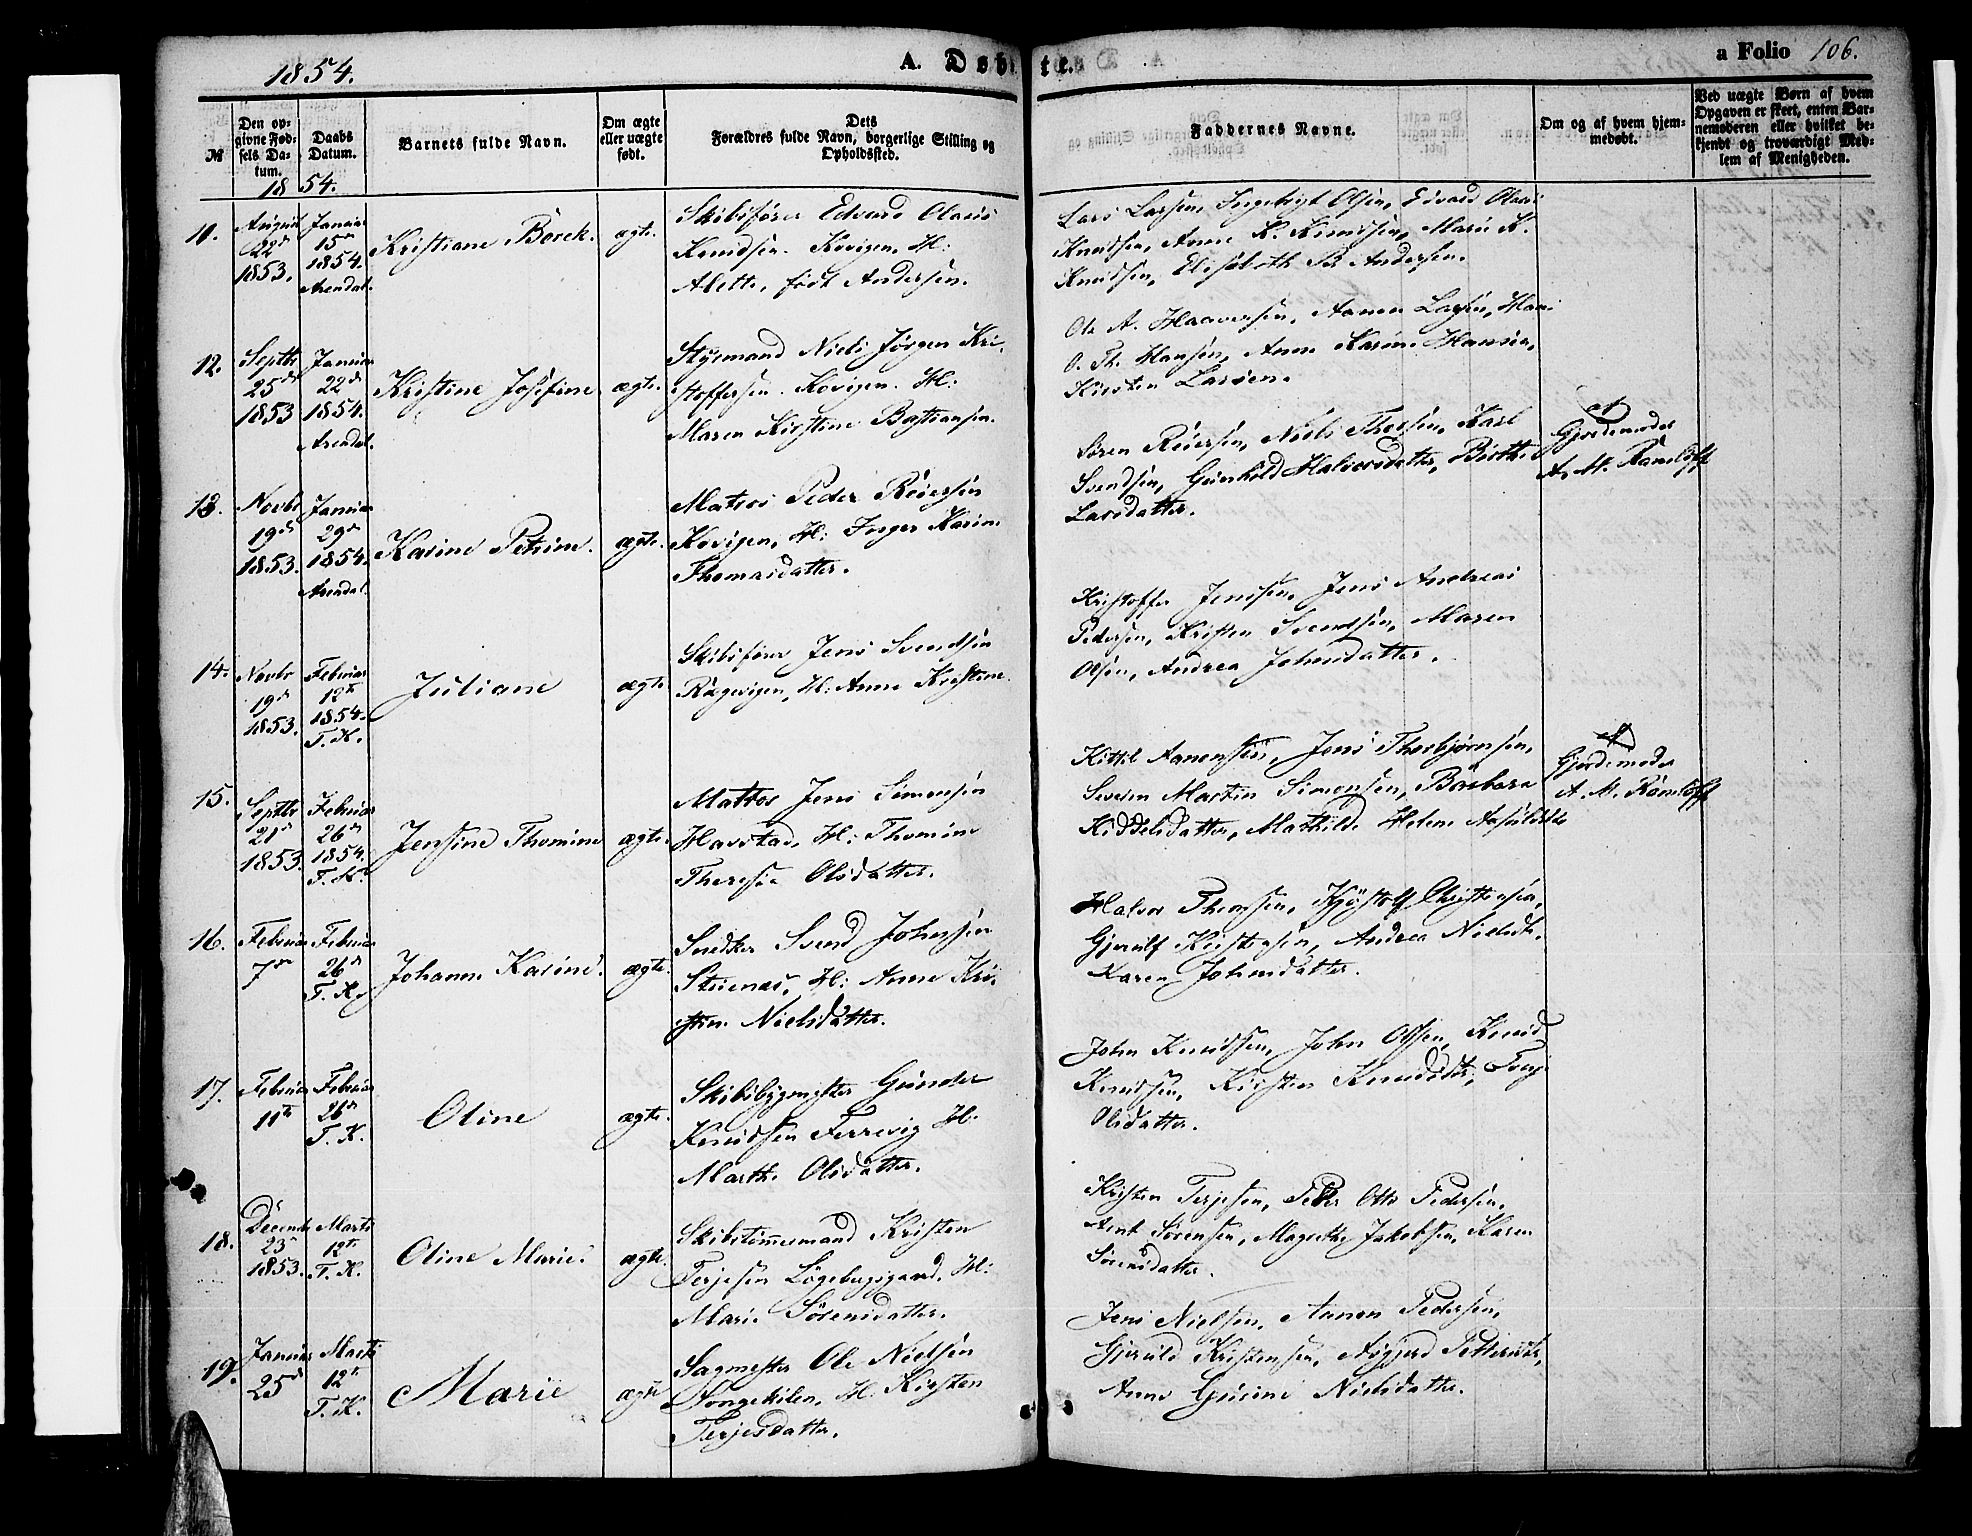 1854.
A. Døbte.
a Folio 106.
№
Den opgivne Fødsels Datum.
Daabs Datum.
Barnets fulde Navn.
Om ægte eller uægte født.
Dets Forældres fulde Navn, borgerlige Stilling og Opholdssted.
Faddernes Navne.
Om og af hvem hjemmedøbt.
Ved uægte Børn af hvem Opgaven er skeet, enten Barnemoderen eller hvilket bekjendt og troværdigt Medlem af Menigheden.
18 54.
11.
August
22de
1853.
Januar
15de
1854.
Arendal.
Kristiane Borch.
ægte.
Skibsfører Edvard Olaus
Knudsen. Kovigen. H:
Alette, født Andersen.
Lars Larsen, Ingebrigt Olsen, Edvard Olaus
Knudsen, Anne K. Knudsen, Maria K.
Knudsen, Elisabeth B. Andersen.
12.
Septbr
25de
1853
Januar
22de
1854.
Arendal.
Kristine Josefine
ægte.
Styrmand Niels Jørgen Kri-
stoffersen. Kovigen. H:
Maren Kirstine Bastiansen.
Ole A. Haavorsen, Aanen Larsen, Hans
O. Th. Hansen, Anne Karine Hansen,
Kirsten Larsen.
13.
Novbr
19de
1853.
Januar
29de
1854.
Arendal.
Karine Petrine.
ægte.
Matros Peder Reiersen
Kovigen, H: Inger Karine
Thomasdatter.
Søren Reiersen, Niels Thersen, Karl
Svendsen, Gunhild Halvorsdatter, Birthe
Larsdatter.
af
Gjordemoder
A. M. Ramløff
14.
Novbr
19de
1853.
Februar
12te
1854.
T. K.
Juliane
ægte
Skibsfører Jens Svendsen
Rægevigen, H: Anne Kirstine
Kristoffer Jensen, Jens Andreas
Pedersen, Kristen Svendsen, Maren
Olsen, Andrea Johnsdatter.
15.
Septbr
21de
1853.
Februar
26de
1854.
T. K.
Jensine Thomine
ægte.
Matros Jens Simonsen
Havstad, H: Thomine
Therese Olsdatter.
Kittil Aanensen, Jens Thorbjørnsen,
Severin Martin Simonsen, Barbara
Kiddelsdatter, Mathilde Helene
af
Gjordemoder
A. M. Ramløff
16.
Februar
7de
Februar
26de
T. K.
Johanne Karine.
ægte.
Snedker Svend Johnsen
Stuenes, H: Anne Kri-
stine Nielsdatter.
Halvor Thomsen, Kjøstolf Christensen,
Gjerulf Kristensen, Andrea Nielsdt.
Karen Johnsdatter.
17.
Februar
11te
Februar
26de
T. K.
Oline
ægte.
Skibsbygmester Gunder
Knudsen Terrevig H:
Marthe Olsdatter.
John Knudsen, John Olsen, Knud
Knudsen, Kirsten Knudsdt,
Olsdatter.
18.
Decembr
23de
1853.
Marts
12te
T. K.
Oline Marie.
ægte.
Skibstømmermand Kristen
Terjesen Løgebergsgaard, H:
Marie Sørensdatter.
Kristen Terjesen, Peder Otto Pedersen,
Arnt Sørensen, Magrethe Jakobsen, Karen
Sørensdatter.
19.
Januar
25de
Marts
12te
T. K.
Marie
ægte
Sagmester Ole Nielsen
Songekilen, H: Kirsten
Terjesdatter.
Jens Nielsen, Aanon Pedersen,
Gjeruld Kristensen, Asgjerd
Anne Gurine Nielsdatter.